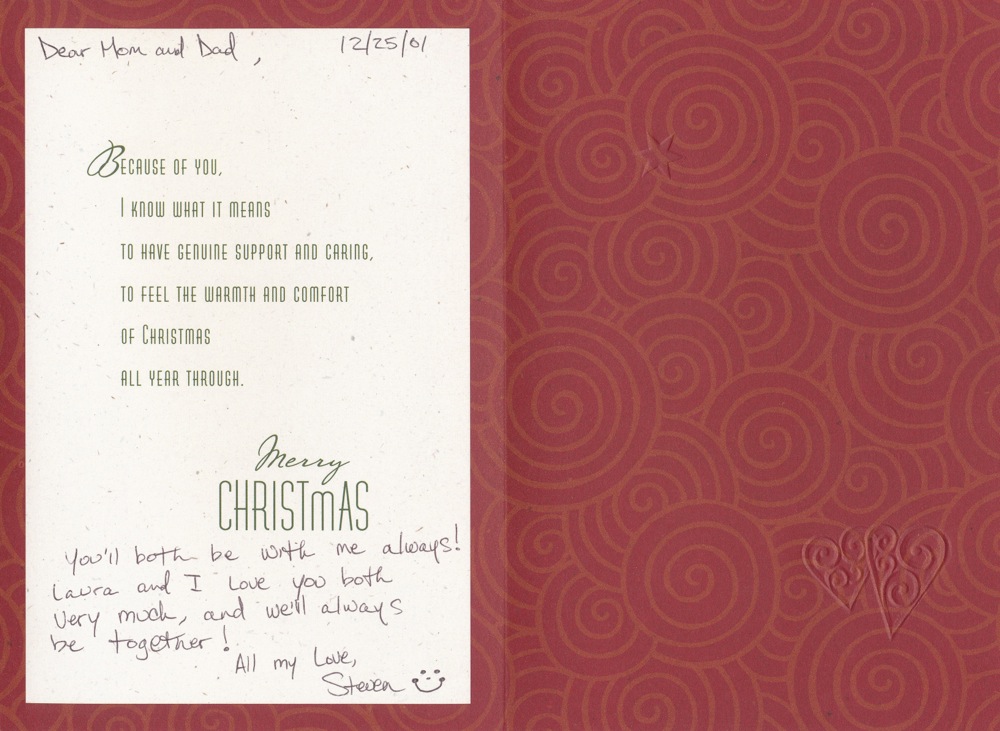 Dear Mom and Dad, 12/25/01
Because of you,
I know what it means
to have genuine support and caring,
to feel the warmth and comfort
of Christmas
all year through.
Merry
CHRISTMAS
You'll both be with me always!
Laura and I Love you both
very much, and we'll always
be together!
All my Love,
Steven